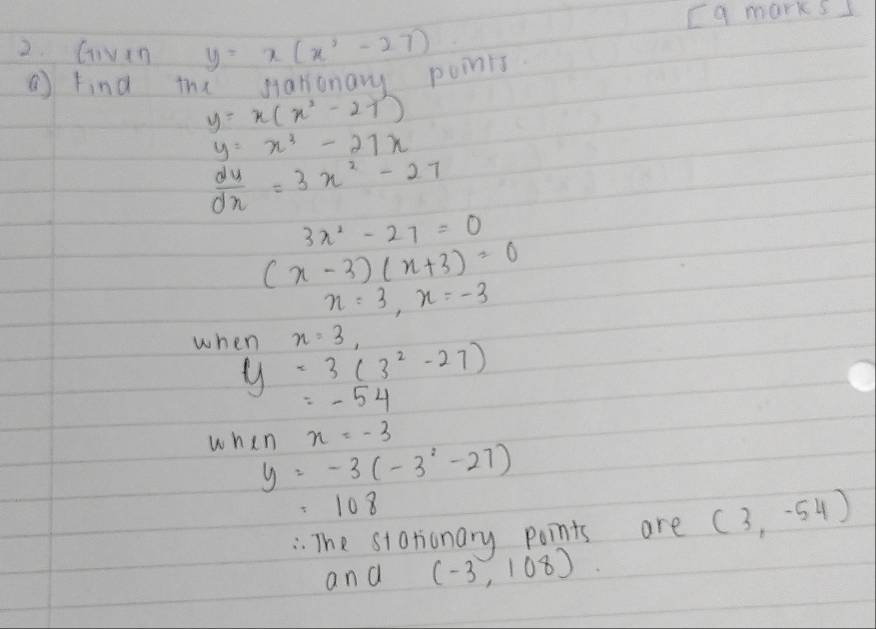 [9 marks]
2. Given y = x(x² - 27).
a) Find the stationary points.
y = x(x² - 27)
y = x³ - 27x
dy/dx = 3x² - 27
3x² - 27 = 0
(x - 3)(x + 3) = 0
x = 3, x = -3
when x = 3,
y = 3(3² - 27)
= -54
when x = -3
y = -3(-3² - 27)
= 108
∴ The stationary points are (3, -54)
and (-3, 108).